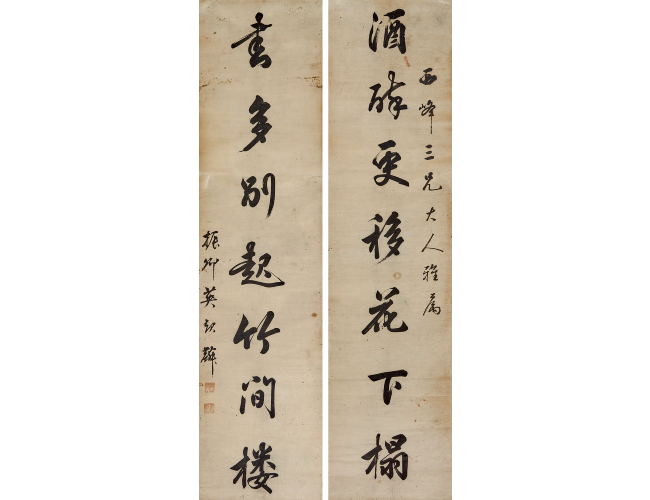 西峰三兄大人雅属
酒醉更移花下榻
書多別起竹間楼
振卿英